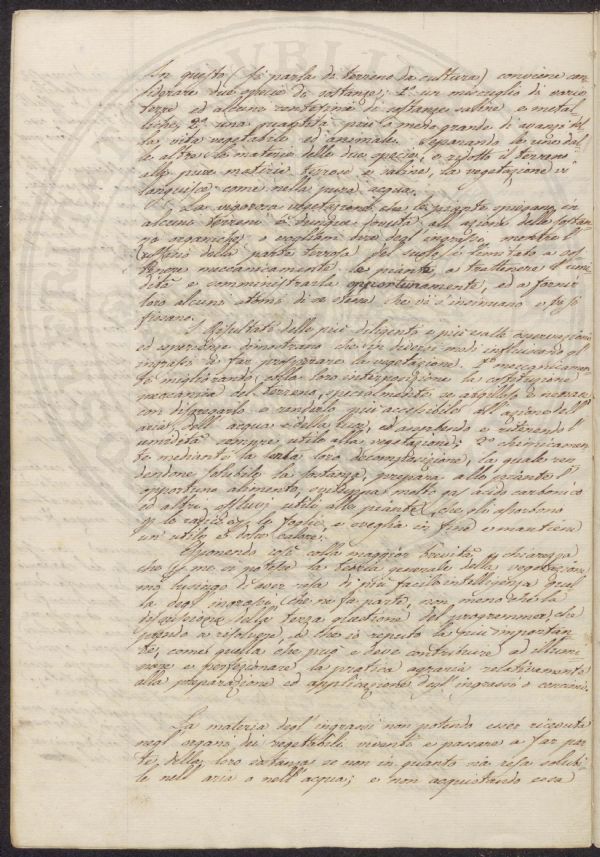 In questo (si parla di terreno da cultura) conviene con
siderare due specie di sostanze; 1.º un miscuglio di varie
terre ed alcune centesime di sostanze saline e metal
liche; 2.º una quantità più o meno grande di avanzi del
la vita vegetabile ed animale. Separando le une dal
le altre le materie delle due specie, e ridotto il terreno
alle pure materie terrose e saline, la vegetazione vi
languisce come nella pura acqua.
La vigorosa vegetazione che le piante spiegano in
alcuni terreni è dunque frutto dell'azione delle sostan
ze organiche, o vogliam dire degl'ingrassi, mentre l'
uffizio della parte terrosa del suolo è limitato a sos
tenere meccanicamente le piante, a trattenere l'umi
dità e somministrarla opportunamente, ed a fornir
loro alcuni atomi di se stessa che vi s'insinuano e vi si
fissano.
I Risultati delle più diligenti e più esatte osservazioni
ed esperienze dimostrano che in diversi modi influiscono gl'
ingrassi a far prosperare la vegetazione. 1.º meccanicamen
te migliorando, colla loro interposizione la costituzione
meccanica del terreno, specialmente se argilloso e tenace,
con disgregarlo e renderlo più accessibile all'azione dell'
aria, dell'acqua e della luce, ed assorbendo e ritenendo l'
umidità sempre utile alla vegetazione; 2.º chimicamen
te mediante la loro decomposizione, la quale ren
dendone solubile la sostanza, prepara alle piante l'
opportuno alimento, sviluppa molto gas acido carbonico
ed altri effluvj utili alle piante, che gli assorbono
p. le radici e p. le foglie, e sveglia in fine e mantiene
un utile e dolce calore.
Esponendo così colla maggior brevità e chiarezza
che p. me si potesse la teoria generale della vegetazione
mi lusingo d'aver resa di più facile intelligenza quel
la degl'ingrassi, che ne fa parte, non meno che la
discussione sulla terza questione del programma, che
prendo a risolvere, e che io reputo la più importan
te, come quella che può e deve contribuire ad illumi
nare e perfezionare la pratica agraria relativamente
alla preparazione ed applicazione degl'ingrassi o concimi.
La materia degl'ingrassi non potendo esser ricevuta
negl'organi dei vegetabili viventi e passare a far par
te della loro sostanza se non in quanto sia resa solubi
le nell'aria o nell'acqua; e non acquistando essa